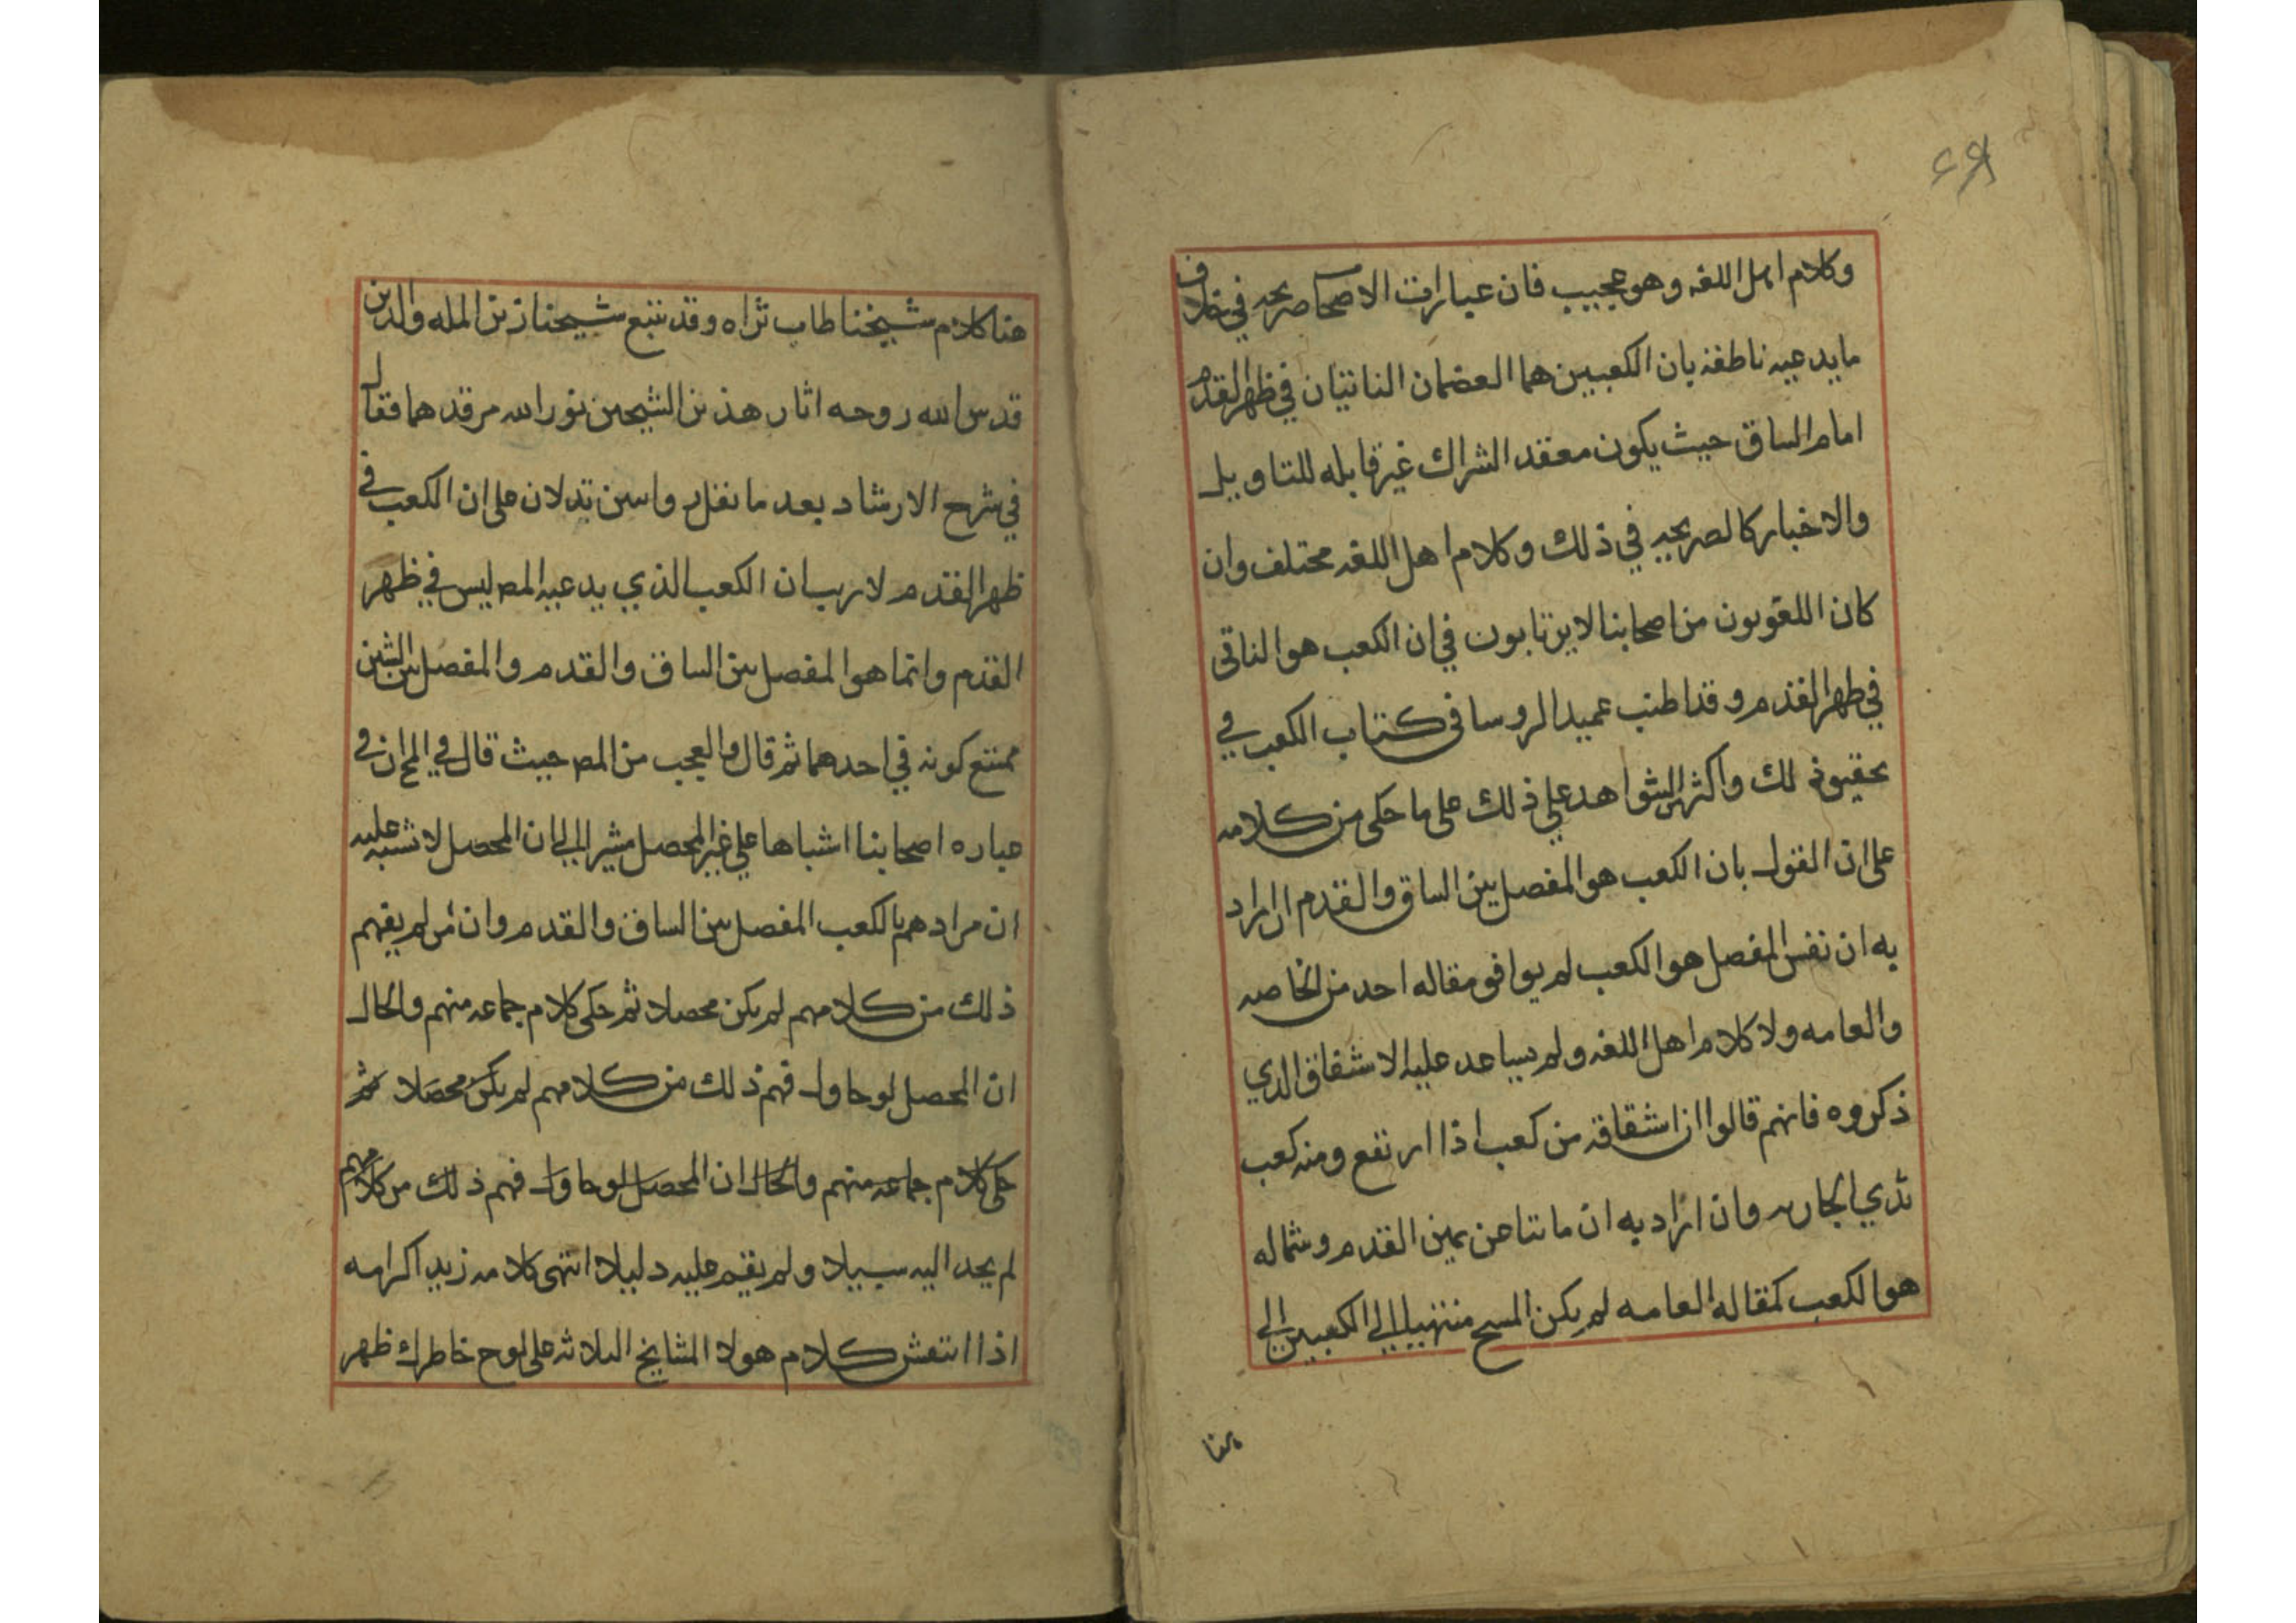 وكلام اهل اللغه وهو عجيب فان عبارات الاصحاب صريحه في خلاف
ما يدعيه ناطقه بان الكعبين هما العضمان الناتيان في ظهر القدم
امام الساق حيث يكون معقد الشراك غير قابله للتاويل
والاخبار كالصريحه في ذلك وكلام اهل اللغه مختلف وان
كان اللغويون من اصحابنا لا يرتابون في ان الكعب هو الناتى
في ظهر القدم وقد اطنب عميد الروسا فى كتاب الكعب في
تحقيق ذلك واكثر الشواهد علي ذلك على ما حكى من كلامه
على ان القول بان الكعب هو المفصل بين الساق والقدم ان اراد
به ان نفس المفصل هو الكعب لم يوافق مقاله احد من الخاصه
والعامه ولا كلام اهل اللغه ولم يساعد عليه الاشقاق الذي
ذكروه فانهم قالوا ان اشقاقه من كعب اذا ارتفع ومنه كعب
ثدي الجاريه وان اراد به ان ما نتا عن يمين القدم وشماله
هو الكعب كمقاله العامه لم يكن المسح منتهيا الي الكعبين الي
هنا
هنا كلام شيخنا طاب ثراه وقد تتبع شيخنا زين المله والدين
قدس الله روحه اثار هذين الشيخين نور الله مرقدهما فقال
في شرح الارشاد بعد ما نقل رواسين تدلان على ان الكعب في
ظهر القدم لا ريب ان الكعب الذي يدعيه المص ليس في ظهر
القدم وانما هو المفصل بين الساق والقدم والمفصل بين الشين
ممتنع كونه في احدهما ثم قال والعجب من المص حيث قال في المخ ان في
عباره اصحابنا اشباها علي غير المحصل مشيرا الي ان المحصل لا تشبه عليه
ان مرادهم بالكعب المفصل بين الساق والقدم وان من لم يفهم
ذلك من كلامهم لم يكن محصلا ثم حكى كلام جماعه منهم والحال
ان المحصل لو حاول فهم ذلك من كلامهم لم يكن محصلا ثم
حكى كلام جماعه منهم والحال ان المحصل لو حاول فهم ذلك من كلامهم
لم يجد اليه سبيلا ولم يقم عليه دليلا انتهى كلامه زيد اكرامه
اذا انتقش كلام هولا المشايخ الثلاثه على لوح خاطرك ظهر